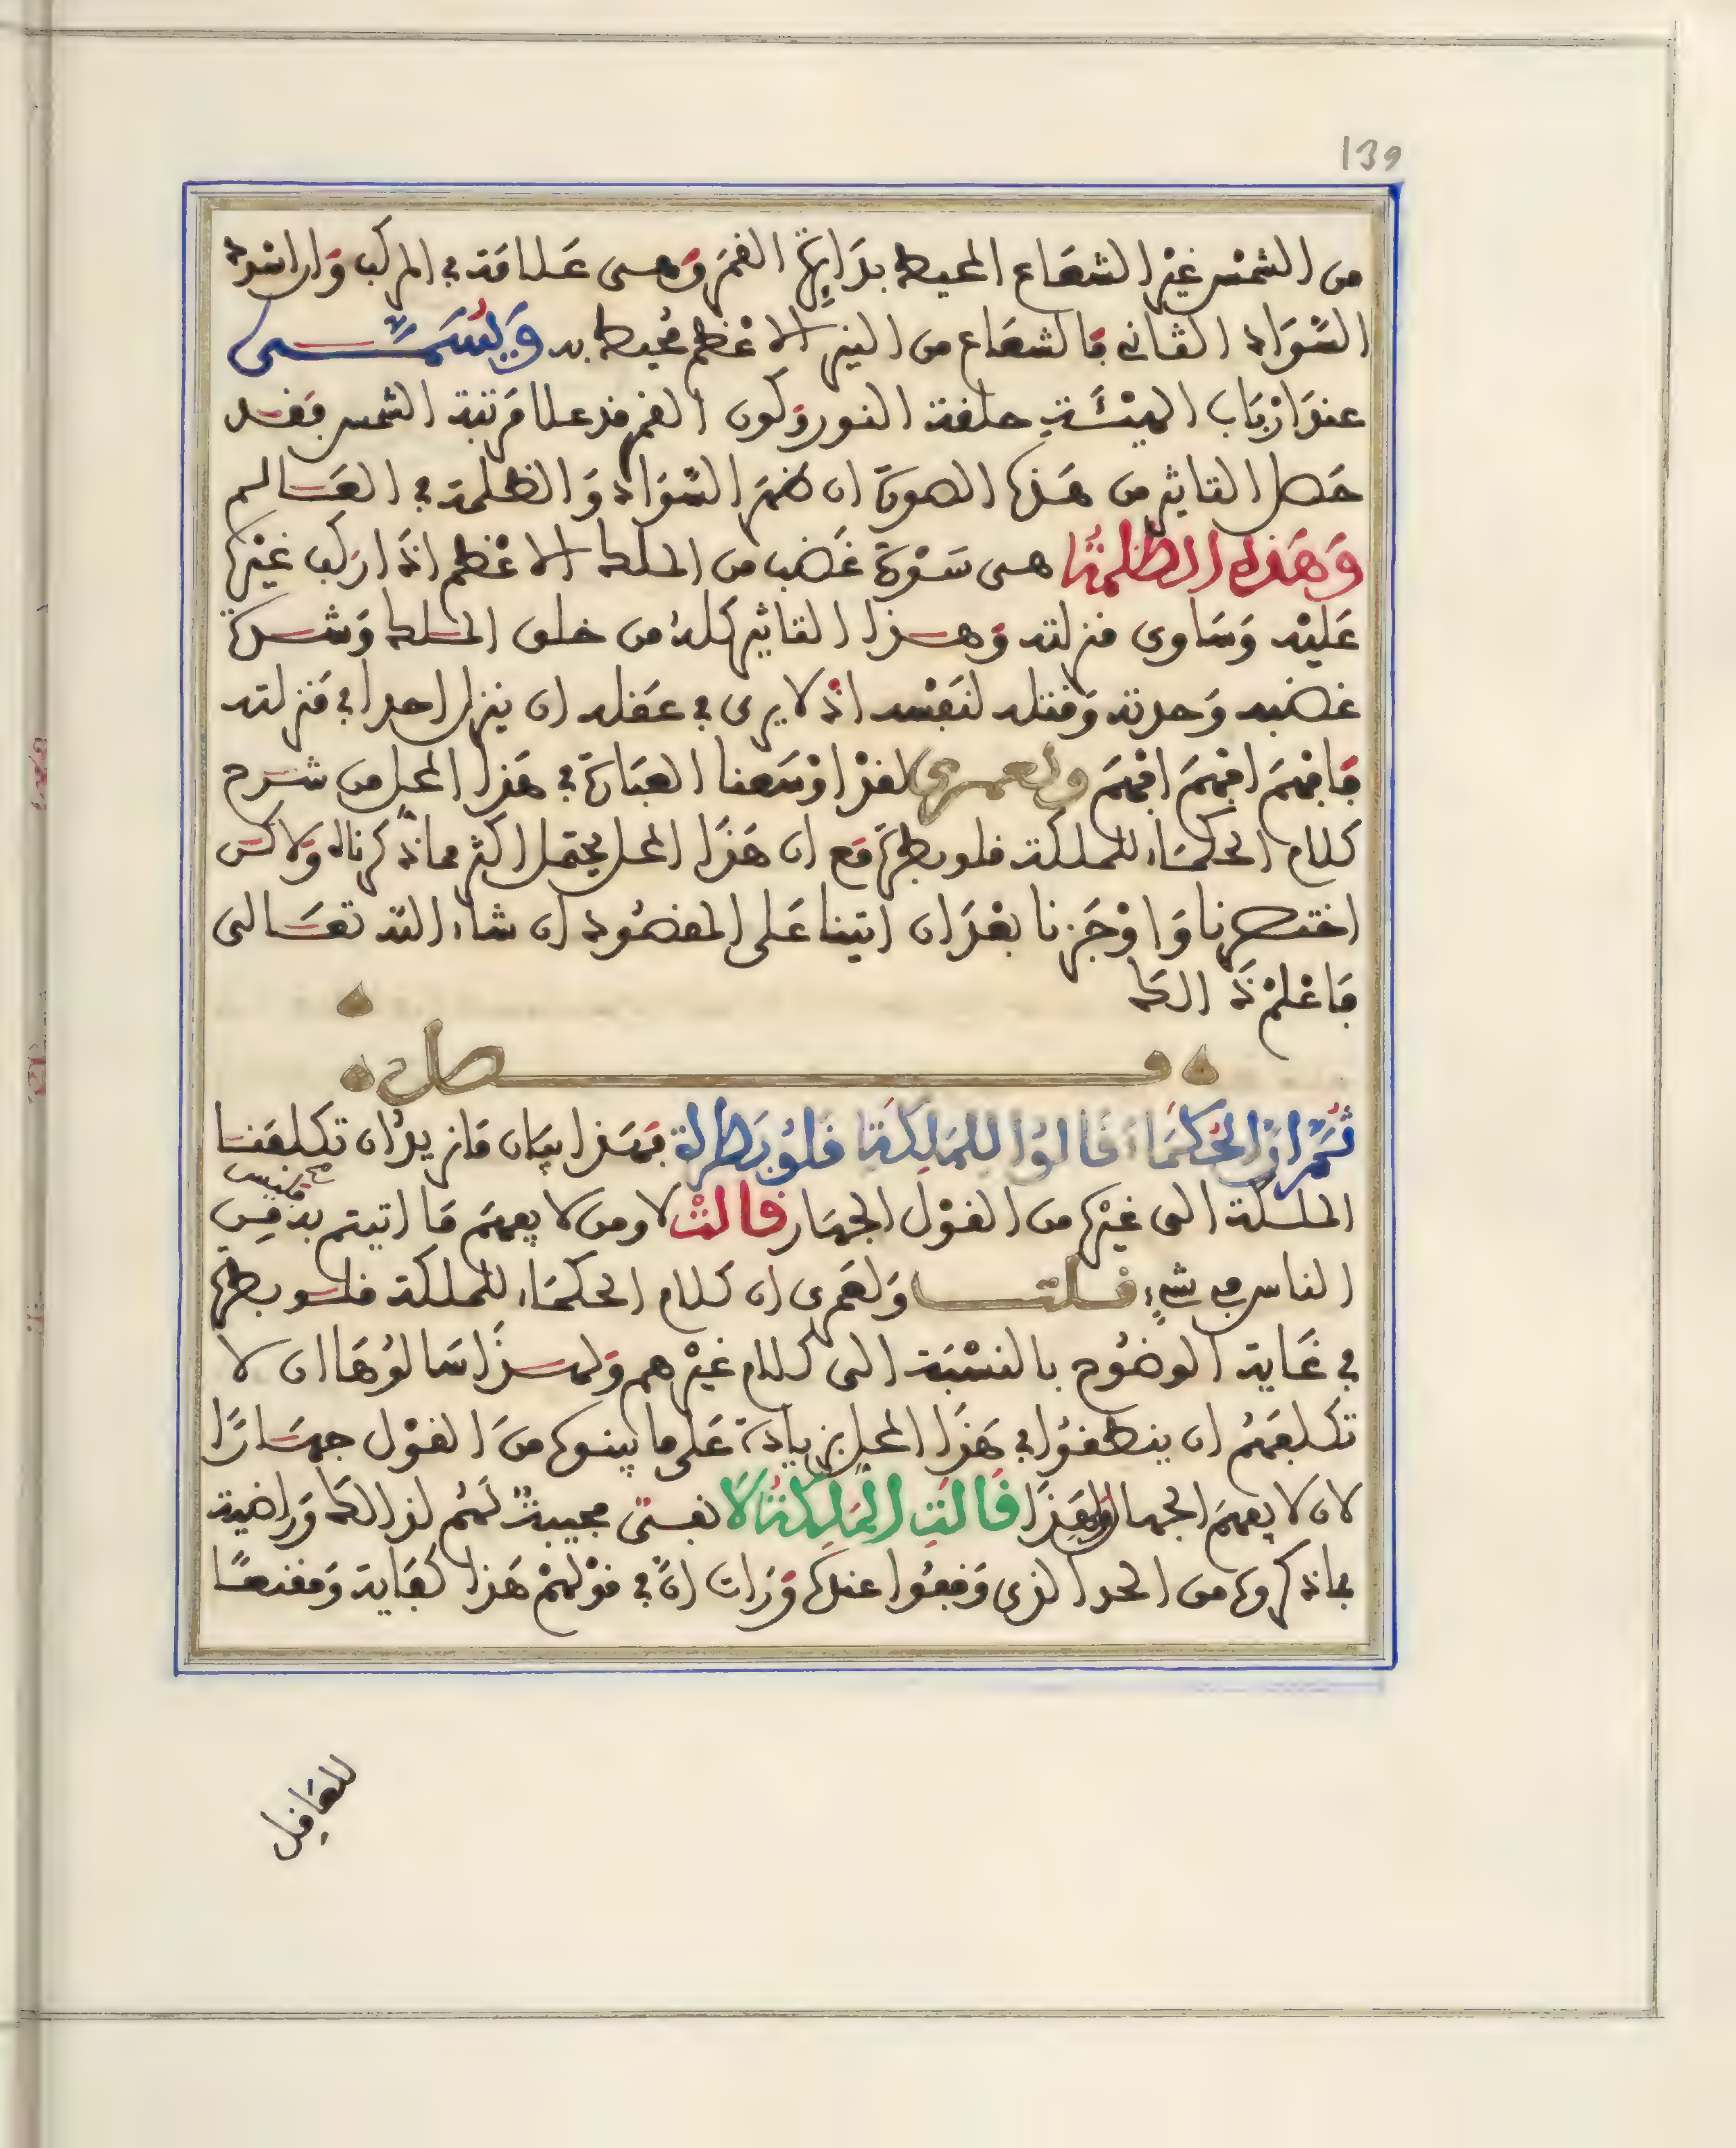 139
من الشمس غير الشعاع المحيط بدايرة القمر وهى علامة في المركب وان اشتد
السواد الثاني فالشعاع من النير الاعظم محيط به ويسمى
عند ارباب الهيئة حلقة النور وكون القمر قد علا مرتبة الشمس فقد
حصل التاثير من هذه الصورة ان ظهر السواد والظلمة في العالم
وهذه الظلمة هى سورة غضب من الملك الاعظم اذا ركب غيره
عليه وساوى منزلته وهذا التاثير كله من خلق الملك وشدة
غضبه وحدته وقتله لنفسه اذ لا يرى في عقله ان ينزل احدا في منزلته
فافهم افهم افهم ولعمري لقد اوسعنا العبارة في هذا المحل من شرح
كلام الحكماء للملكة قلوبطرة مع ان هذا المحل يحتمل اكثر مما ذكرناه ولاكن
اختصرنا واوجزنا بعد ان اتينا على المقصود ان شاء الله تعالى
فاعلم ذالك
فصل
ثم ان الحكماء قالوا للملكة قلوبطرة فهذا بيان ما نريد ان تكلفنا
الملكة الى غيره من القول الجهار قالت لا ومن لا يفهم ما اتيتم به فليس
صح فليس
الناس في شيء قلت ولعمرى ان كلام الحكماء للملكة قلوبطرة
في غاية الوضوح بالنسبة الى كلام غيرهم ولهذا سالوها ان لا
تكلفهم ان ينطقوا في هذا المحل بزيادة على ما بينوه من القول جهارا
لان لا يفهم الجهال ولهذا قالت الملكة لا نفستى مجيبة لهم لذالك وراضية
بما ذكروه من الحد الذى وقفوا عنده ورات ان في قولهم هذا كفاية ومقنعا
للعاقل